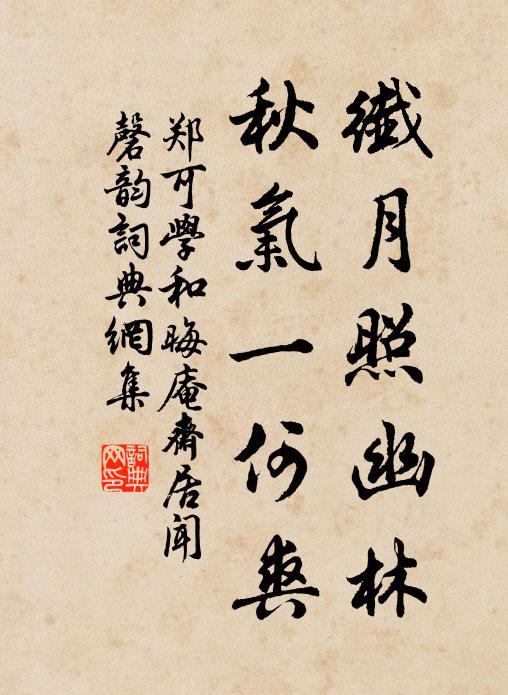 纖月照幽林
秋氣一何爽
郑可學和晦庵齋居聞
磬韵詞典網集
詞典网印